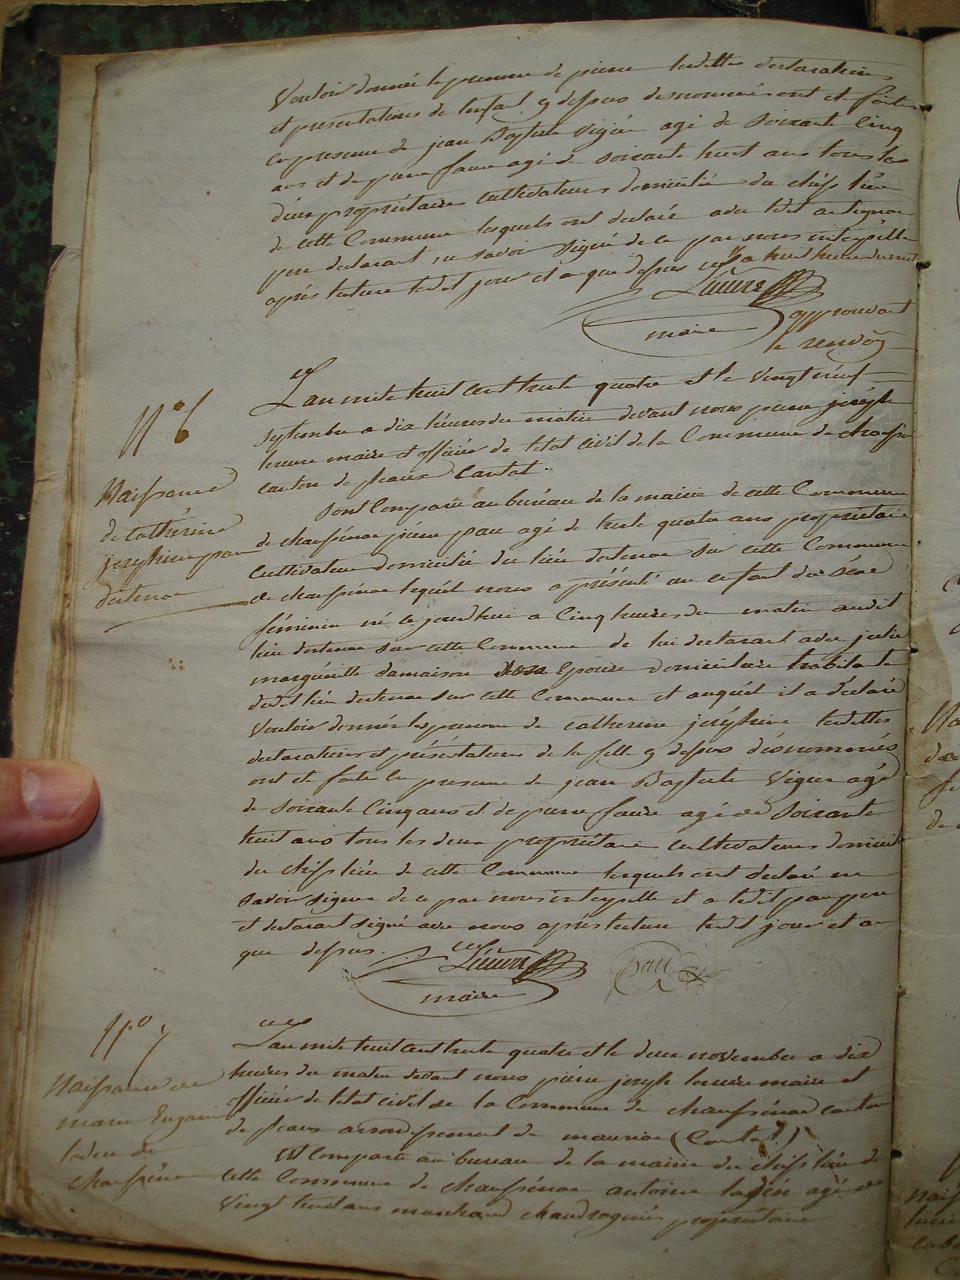 Vouloir donner le prenom de pierre lesdittes declarations
et presentations de lenfant cy dessus denommé ont et faite
en presence de jean Baptiste Vigier agé de soixante Cinq
ans et de pierre faure agé de soixante huit ans tous les
deux propriétaire cultivateurs domicilié du chef lieu
de cette Commune lesquels ont declaré avec ledit antignac
pere declarant ne savoir signer de ce par nous interpellé
après lecture ledit jour et an que dessus à huit heures
maire
approuvant
le renvoy
N° 6
Naissance
de Catherine
jozephine pau
Lan mile huit cent trente quatre et le vingt neuf
septembre a dix heures du matin devant nous pierre joseph
maire et officier de letat civil de la Commune de
canton de pleaux Cantal
sont Comparu au bureau de la mairie de cette Commune
de chaussenac pierre pau agé de trente quatre ans propriétaire
cultivateur domicilié du lieu sur cette Commune
de chaussenac lequel nous a présenté un enfant du sexe
féminin né ce jourdhui a Cinq heures du matin audit
lieu sur cette Commune de lui declarant avec julie
margueritte damaison Epouse domiciliée habitante
dudit lieu sur cette Commune et auquel il a déclaré
Vouloir donner les prenom de catherine jozephine lesdittes
declarations et présentations de la fille cy dessus dénommés
ont et faite en presence de jean Baptiste Vigier agé
de soixante Cinq ans et de pierre faure agé de soixante
huit ans tous les deux propriétaire cultivateurs domicilié
du chef lieu de cette Commune lesquels ont declaré ne
savoir signer de ce par nous interpellé et a ledit pau pere
et declarant signé avec nous après lecture ledit jour et an
que dessus.
maire
pau
N° 7
Naissance de
marie Eugenie
de
Lan mile huit cent trente quatre et le deux novembre a dix
heures du matin devant nous pierre joseph maire et
officier de letat civil de la Commune de chaussenac canton
de pleaux arrondissement de mauriac (Cantal)
est Comparu au bureau de la mairie du chef lieu de
cette Commune de chaussenac antoine agé de
vingt huit ans marchand chaudronnier propriétaire